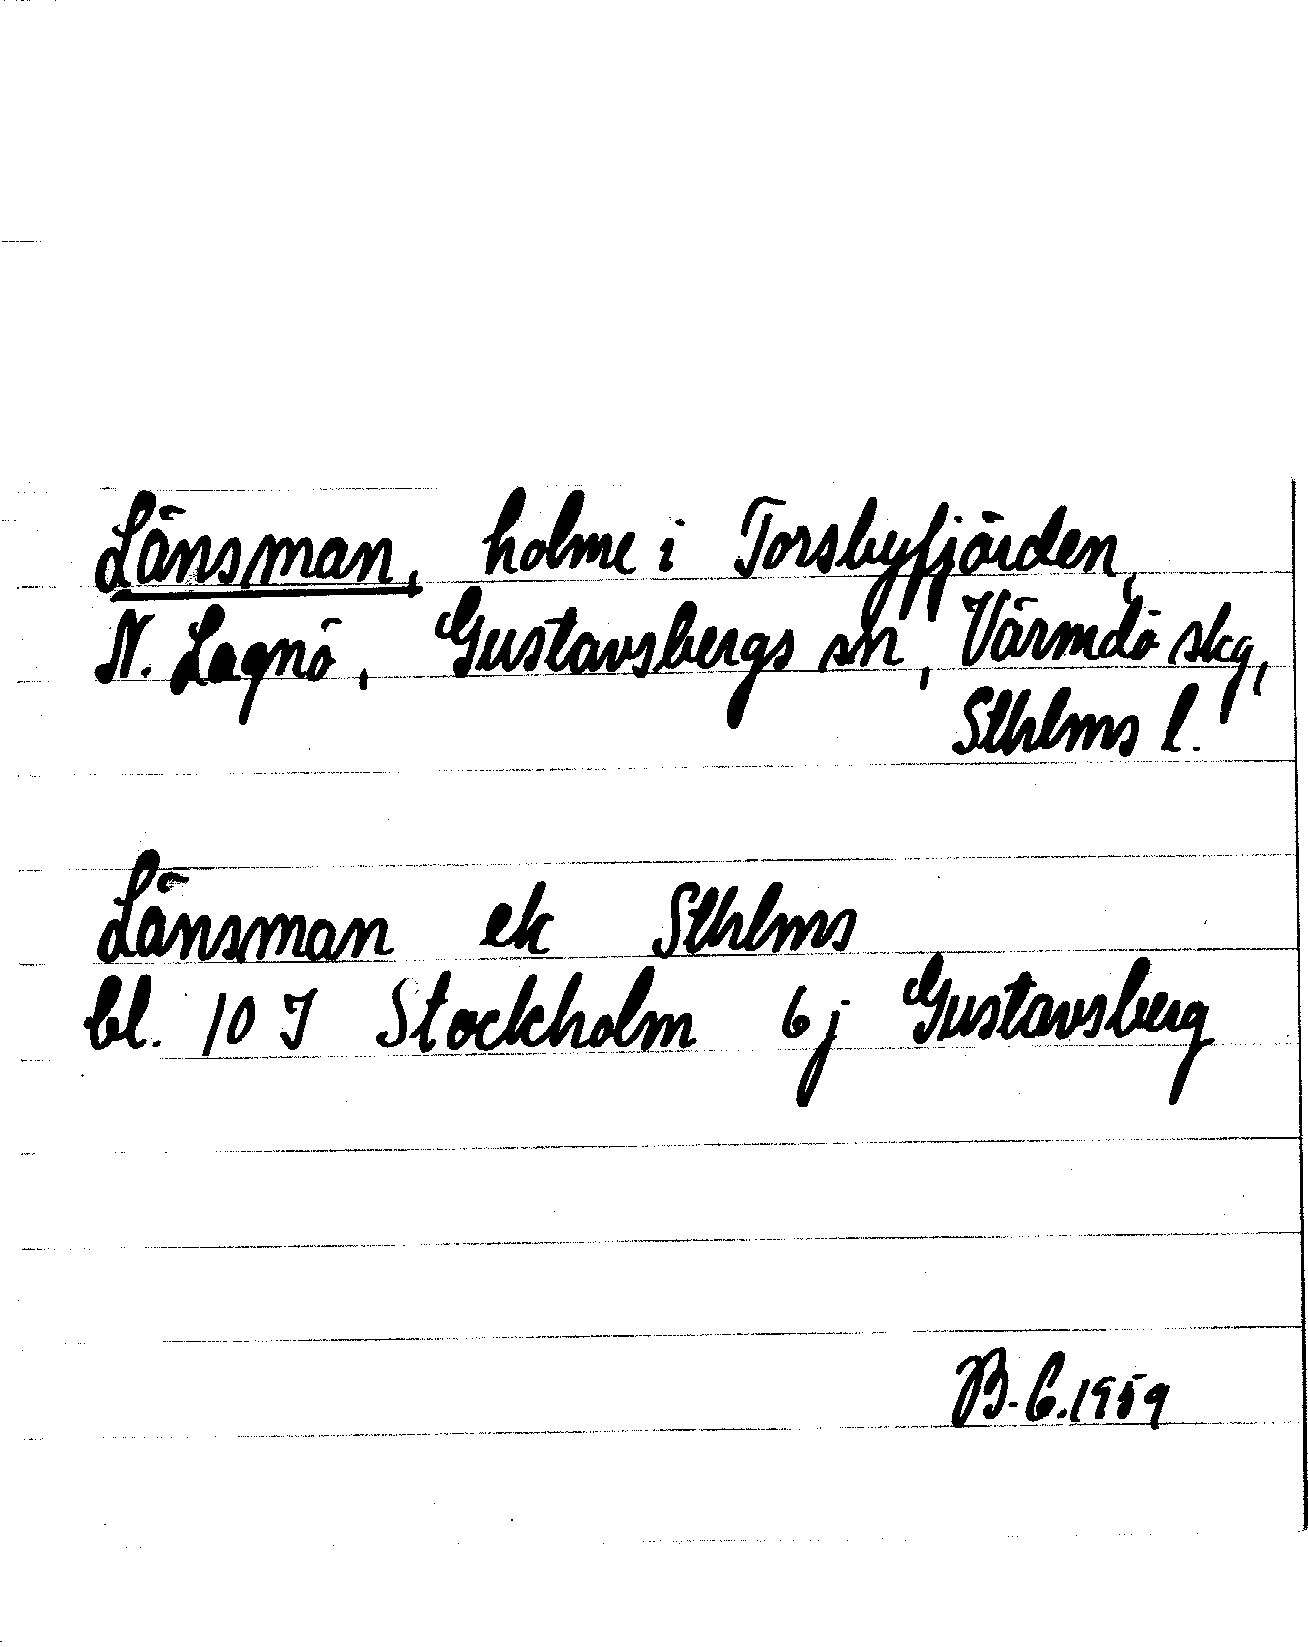 Länsman, holme i Torsbyfjärden,
N. Lagnö, Gustavsbergs sn, Värmdö skg,
Sthlms l.
Länsman ek Sthlms
bl. 10 J Stockholm 6j Gustavsberg
B. C. 1959